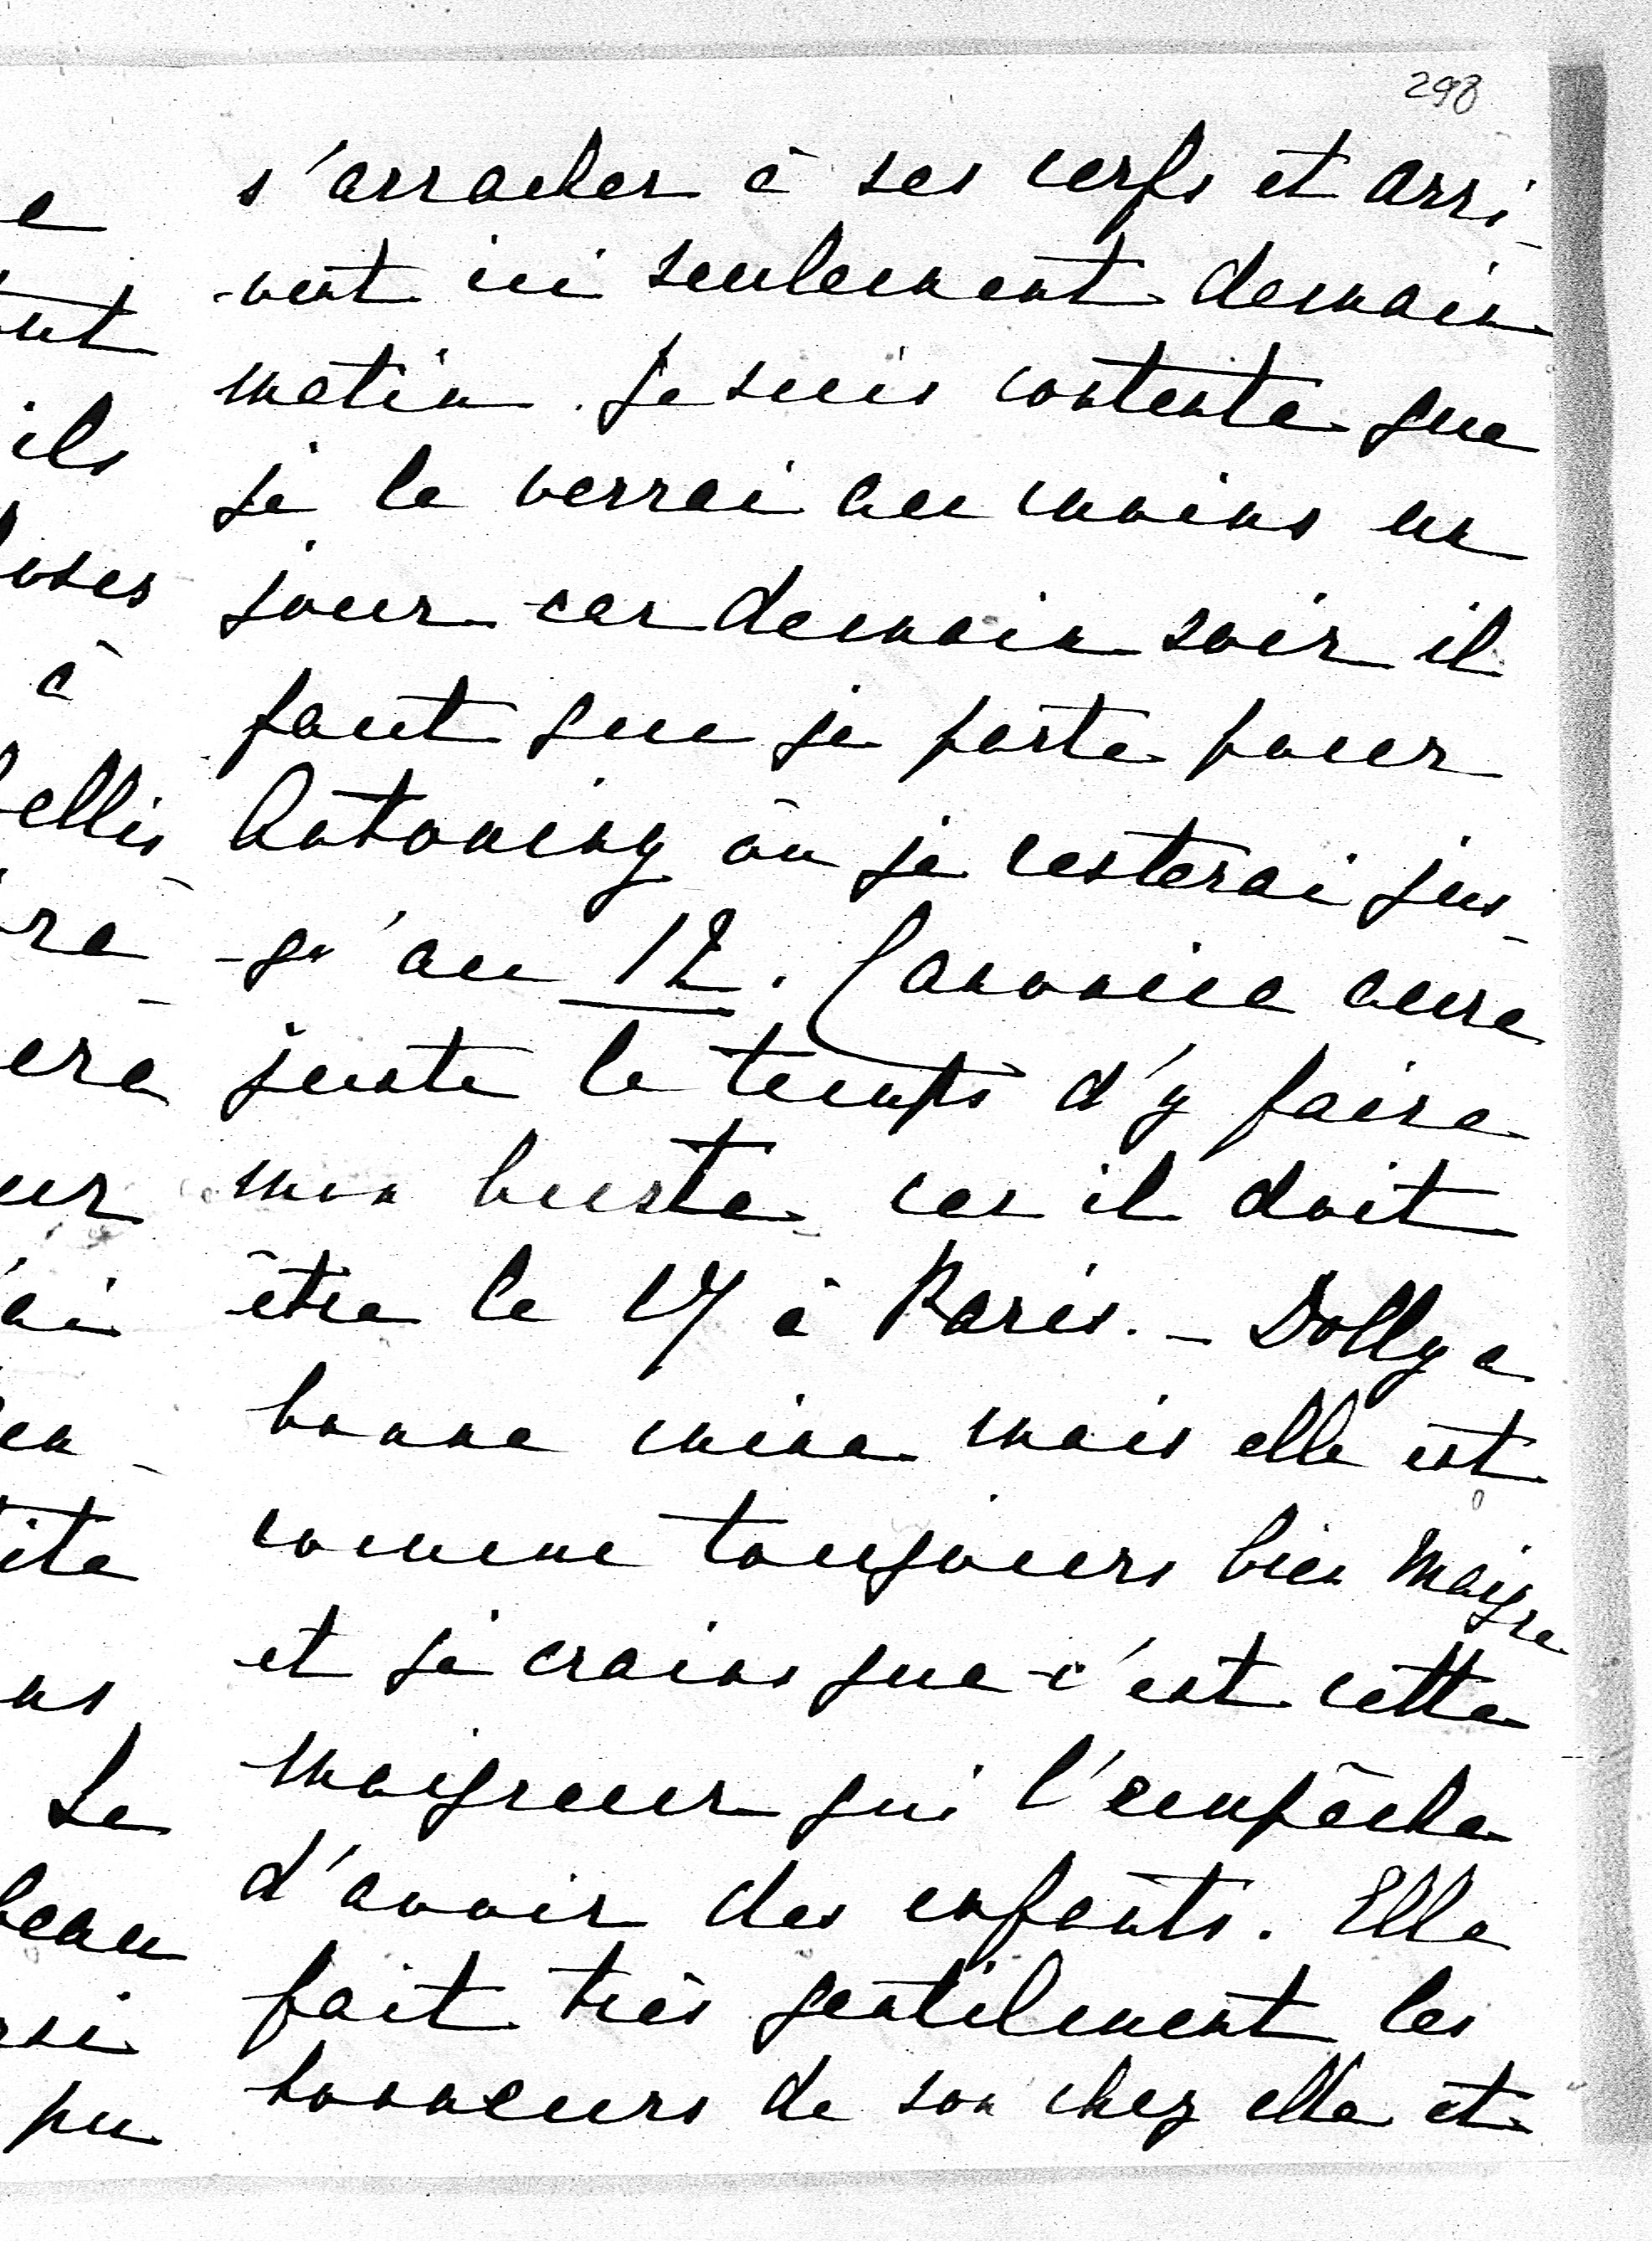 298
s'arracher à ses cerfs et arri-
-vent ici seulement demain
matin. Je suis contente que
je le verrai au moins un
jour car demain soir il
faut que je parte pour
Antoniny où je resterai jus-
-qu'au 12. Canonica aura
juste le temps d'y faire
mon buste car il doit
être le 17 à Paris. - Dolly a
bonne mine mais elle est
comme toujours bien maigre
et je crains que c'est cette
maigreur qui l'empêche
d'avoir des enfants. Elle
fait très gentilement les
honneurs de son chez elle et
e
ent
ils
oses
à
ellis
re
era
ur
ai
en
ite
ns
Le
beau
si
pu